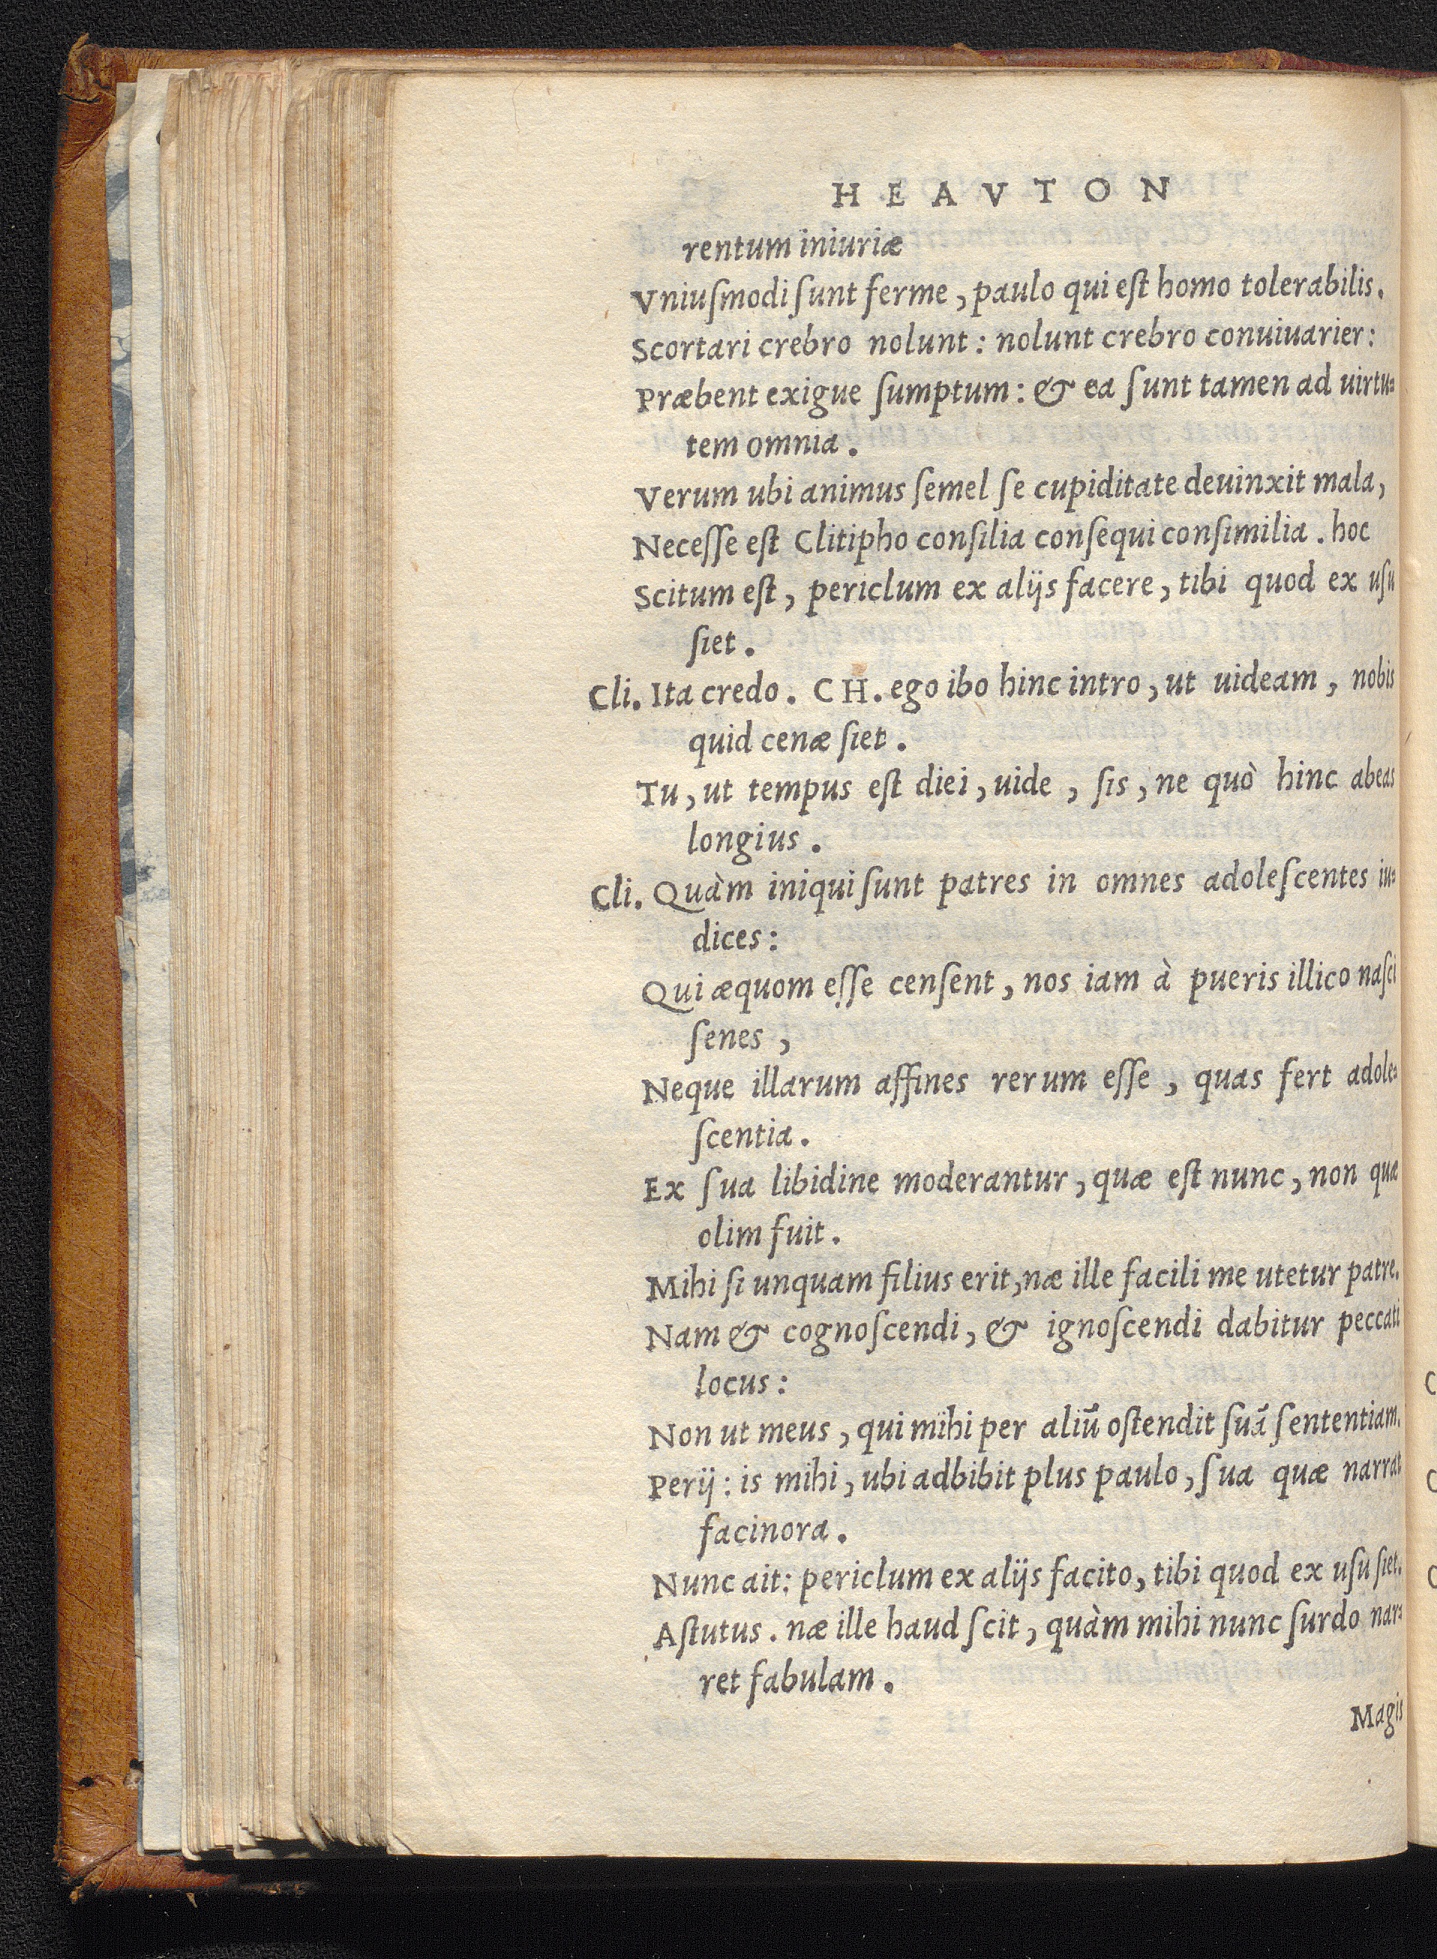 HEAVTON
rentum iniuriæ
Vniuſmodi ſunt ferme, paulo qui eſt homo tolerabilis.
Scortari crebro nolunt: nolunt crebro conuiuarier:
Præbent exigue ſumptum: & ea ſunt tamen ad uirtu-
tem omnia.
Verum ubi animus ſemel ſe cupiditate deuinxit mala,
Neceſſe eſt Clitipho conſilia conſequi conſimilia. hoc
Scitum eſt, periclum ex alijs facere, tibi quod ex uſu
ſiet.
Cli. Ita credo. CH. ego ibo hinc intro, ut uideam, nobis
quid cenæ ſiet.
Tu, ut tempus eſt diei, uide, ſis, ne quò hinc abeas
longius.
Cli. Quàm iniqui ſunt patres in omnes adoleſcentes iu-
dices:
Qui æquom eſſe cenſent, nos iam à pueris illico naſci
ſenes,
Neque illarum affines rerum eſſe, quas fert adole-
ſcentia.
Ex ſua libidine moderantur, quæ eſt nunc, non quæ
olim fuit.
Mihi ſi unquam filius erit, næ ille facili me utetur patre.
Nam & cognoſcendi, & ignoſcendi dabitur peccati
locus:
Non ut meus, qui mihi per aliũ oſtendit ſuã ſententiam.
Perij: is mihi, ubi adbibit plus paulo, ſua quæ narrat
facinora.
Nunc ait: periclum ex alijs facito, tibi quod ex uſu ſiet.
Aſtutus. næ ille haud ſcit, quàm mihi nunc ſurdo nar-
ret fabulam.
Magis